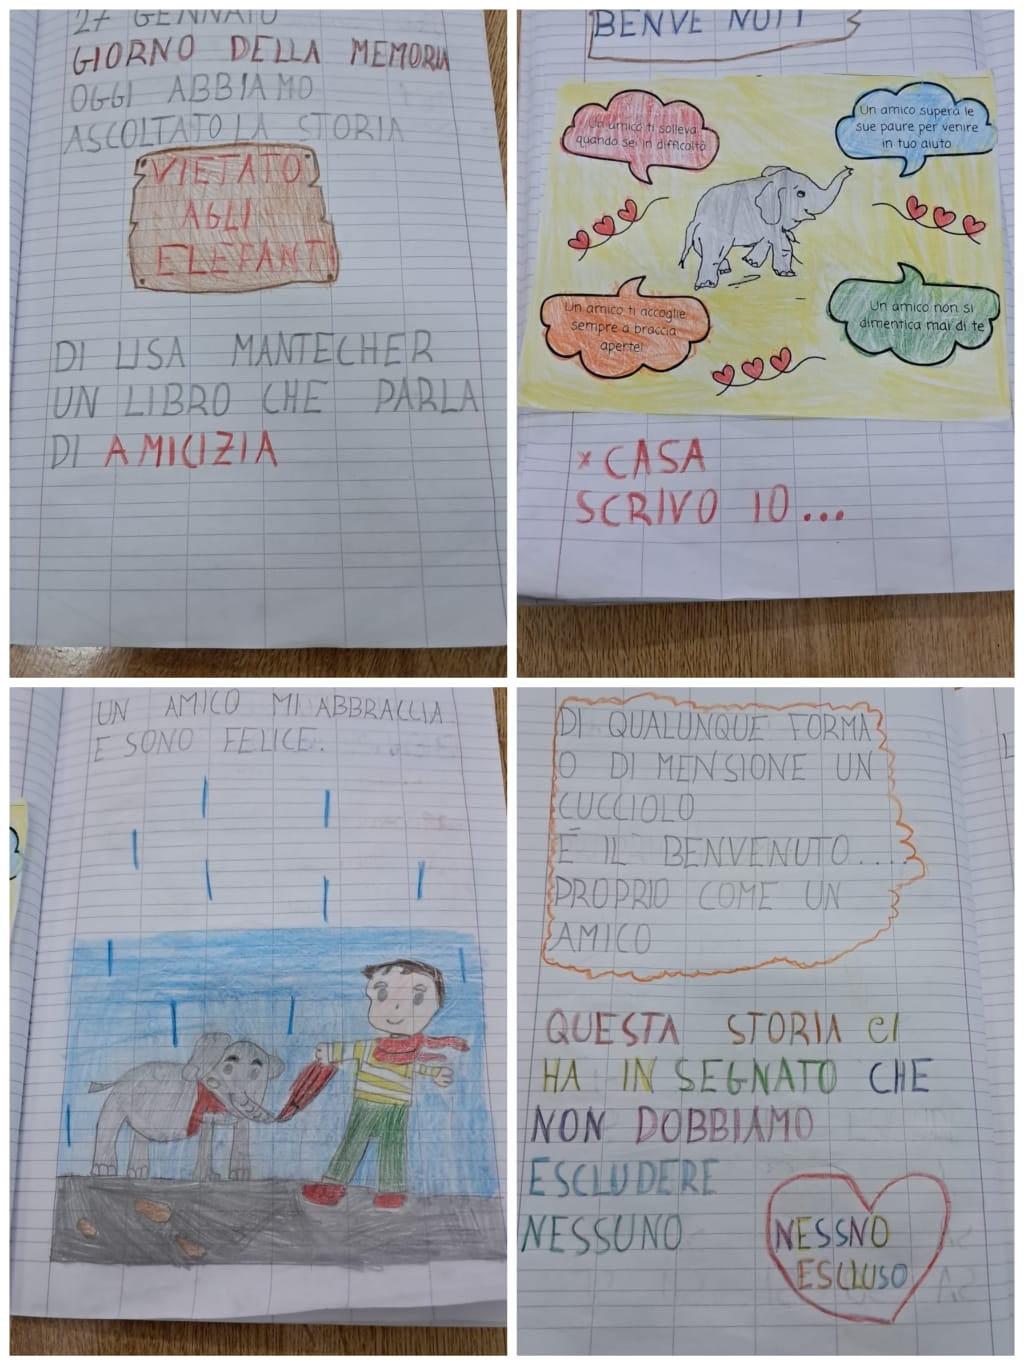 27 GENNAIO
GIORNO DELLA MEMORIA
OGGI ABBIAMO
ASCOLTATO LA STORIA
VIETATO
AGLI
ELEFANTI
DI LISA MANTECHER
UN LIBRO CHE PARLA
DI AMICIZIA
BENVENUTI
Un amico ti solleva
quando sei in difficoltà
Un amico supera le
sue paure per venire
in tuo aiuto
Un amico ti accoglie
sempre a braccia
aperte!
Un amico non si
dimentica mai di te
× CASA
SCRIVO IO...
UN AMICO MI ABBRACCIA
E SONO FELICE.
DI QUALUNQUE FORMA
O DI MENSIONE UN
CUCCIOLO
É IL BENVENUTO....
PROPRIO COME UN
AMICO
QUESTA STORIA CI
HA IN SEGNATO CHE
NON DOBBIAMO
ESCLUDERE
NESSUNO
NESSNO
ESCLUSO